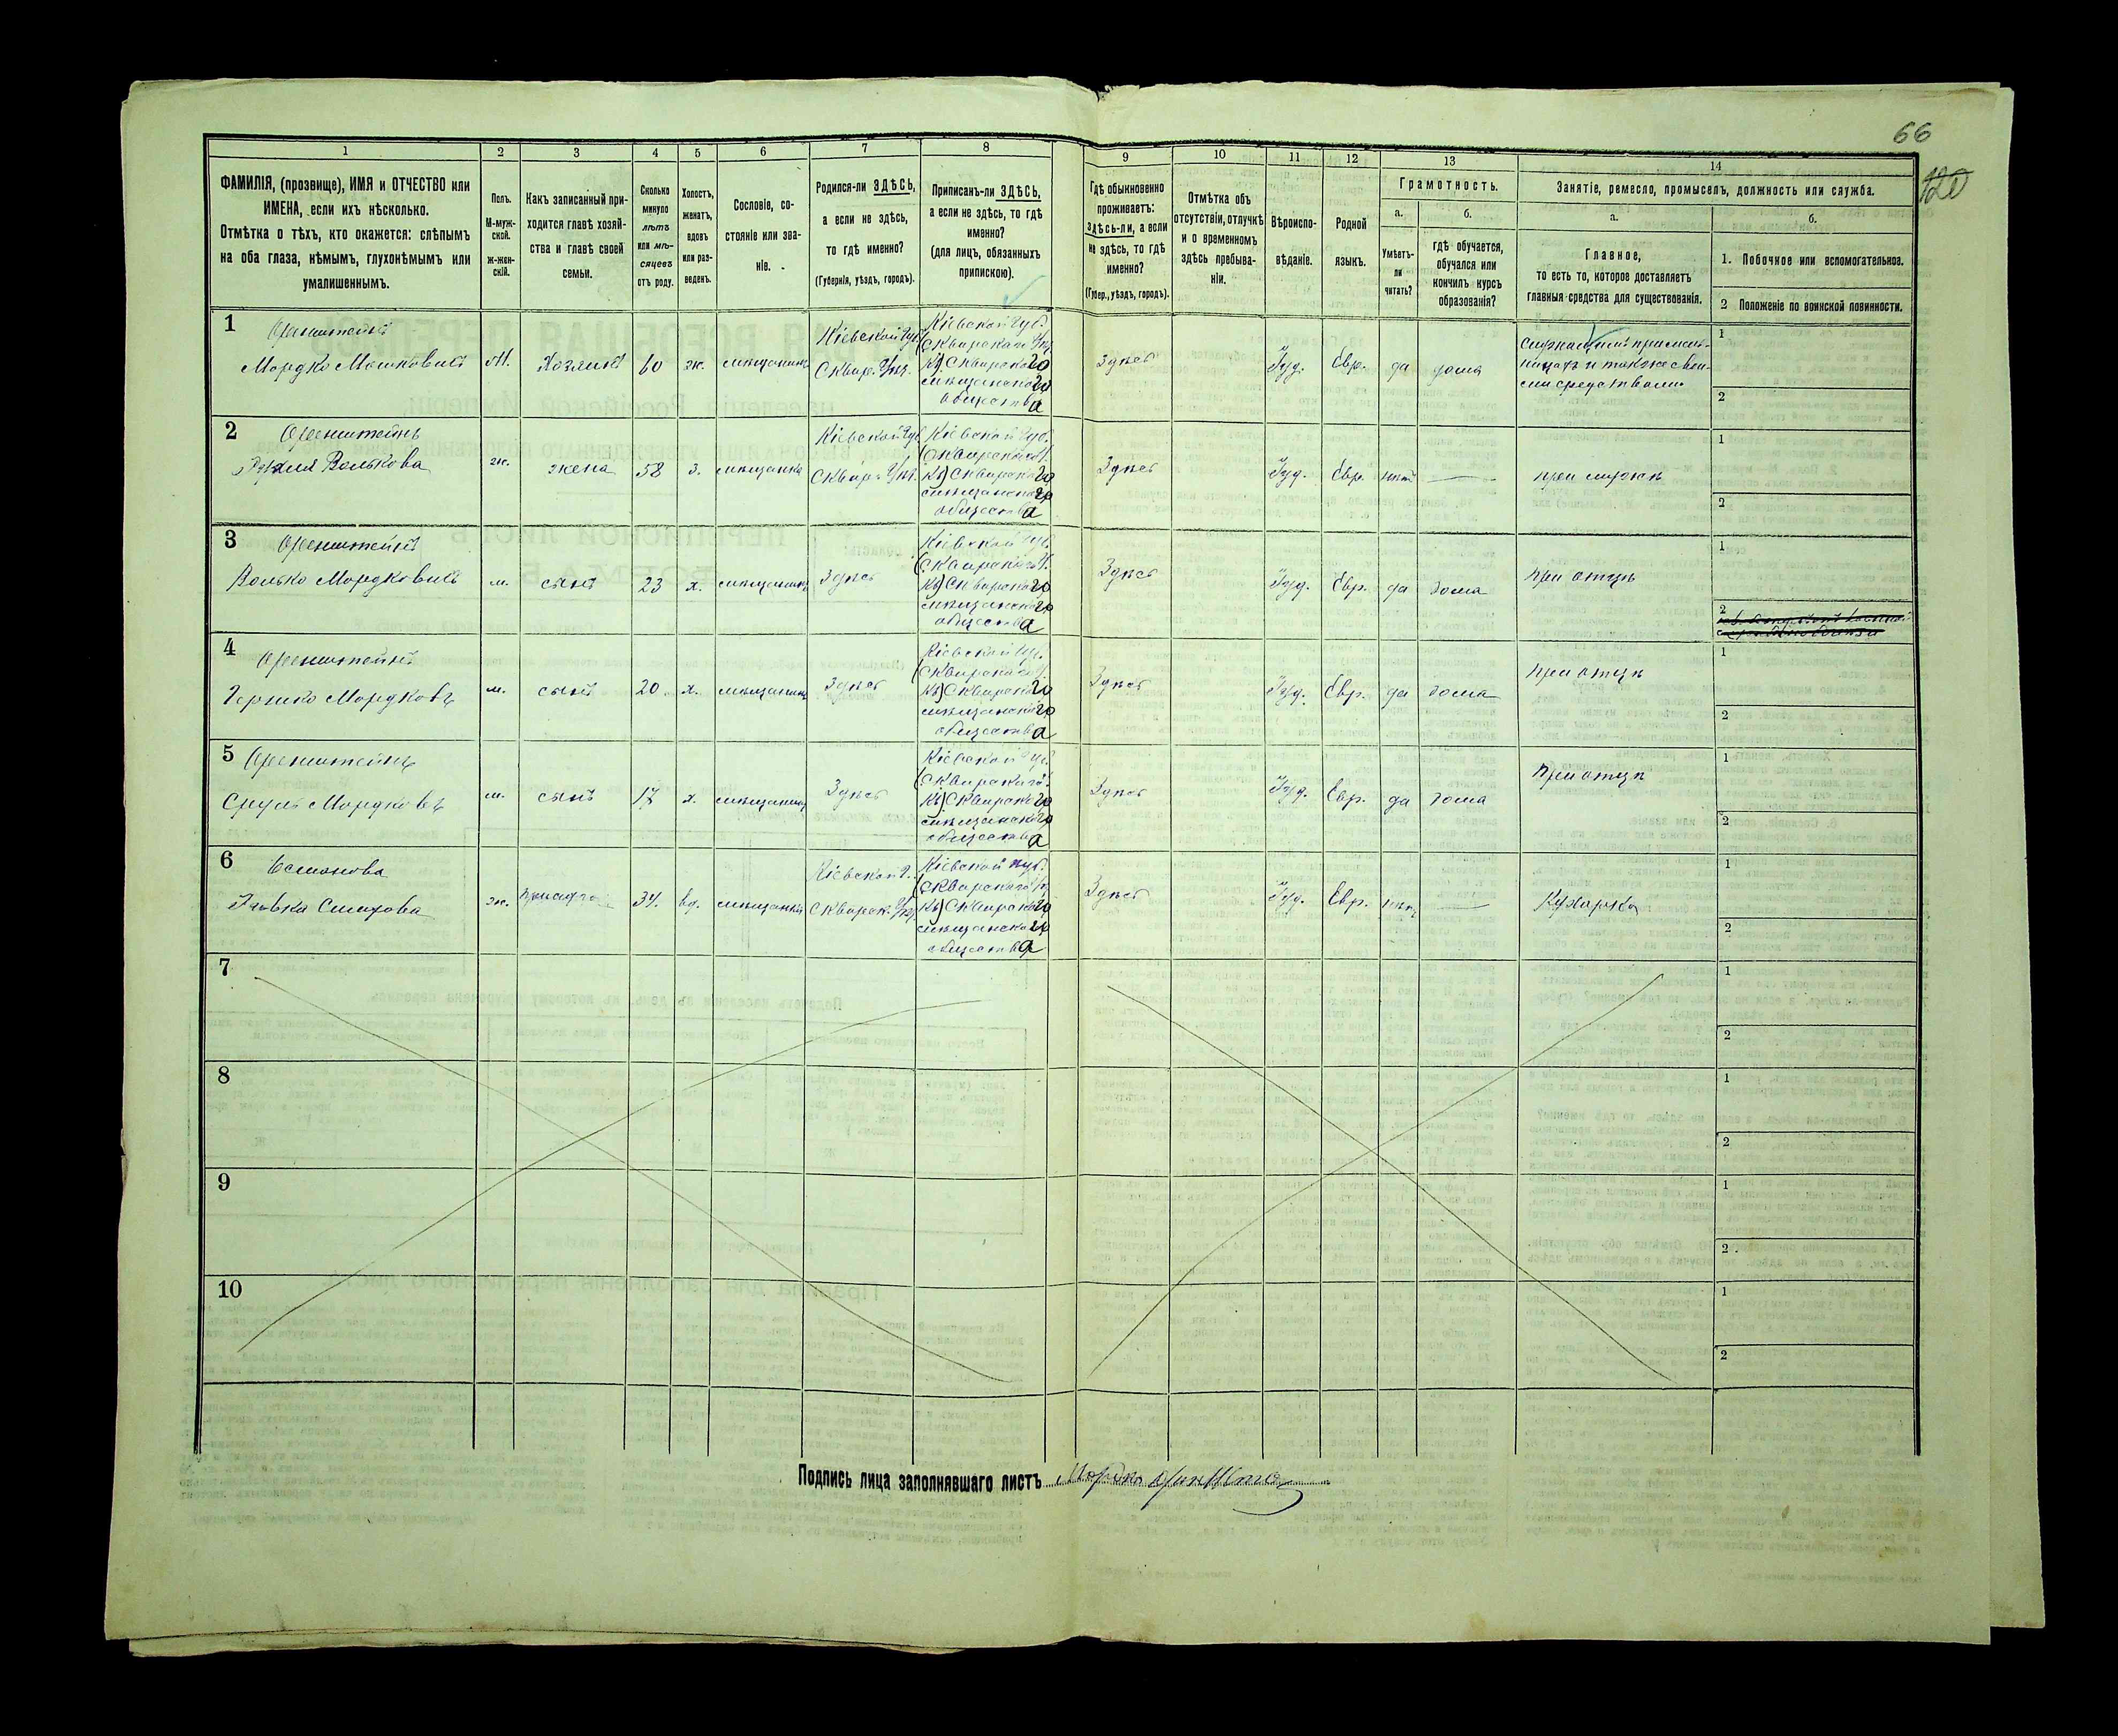 66
120
1
2
3
4
5
6
7
8
9
10
11
12
13
14
ФАМИЛІЯ, (прозвище), ИМЯ и ОТЧЕСТВО или
ИМЕНА, если ихъ нѣсколько.
Отмѣтка о тѣхъ, кто окажется: слѣпымъ
на оба глаза, нѣмымъ, глухонѣмымъ или
умалишеннымъ.
Полъ.
М-муж-
ской.
ж-жен-
скій.
Какъ записанный при-
ходится главѣ хозяй-
ства и главѣ своей
семьи.
Сколько
минуло
лѣтъ
или мѣ-
сяцевъ
отъ роду.
Холостъ,
женатъ,
вдовъ
или раз-
веденъ.
Сословіе, со-
стояніе или зва-
ніе.
Родился-ли ЗДѢСЬ,
а если не здѣсь,
то гдѣ именно?
(Губернія, уѣздъ, городъ).
Приписанъ-ли ЗДѢСЬ,
а если не здѣсь, то гдѣ
именно?
(для лицъ, обязанныхъ
припискою).
Гдѣ обыкновенно
проживаетъ:
здѣсь-ли, а если
не здѣсь, то гдѣ
именно?
(Губер., уѣздъ, городъ).
Отмѣтка объ
отсутствіи, отлучкѣ
и о временномъ
здѣсь пребыва-
ніи.
Вѣроиспо-
вѣданіе.
Родной
языкъ.
Грамотность.
а.
Умѣетъ-
ли
читать?
б.
гдѣ обучается,
обучался или
кончилъ курсъ
образованія?
Занятіе, ремесло, промыселъ, должность или служба.
а.
Главное,
то есть то, которое доставляетъ
главныя средства для существованія.
б.
1. Побочное или вспомогательное.
2 Положеніе по воинской повинности.
1
Оренштейнъ
Мордко Мошковичъ
М.
Хозяинъ
60
ж.
мѣщанинъ
Кіевской Губ.
Сквир. Уѣз.
Кіевской Губ.
Сквирскаго Уѣз.
Сквирскаго
мѣщанскаго
общества
Здѣсь
Іуд.
Евр.
да
дома
средствами
1
2
2
Оренштейнъ
Волькова
ж.
жена
58
з.
мѣщанка
Кіевской Губ.
Сквир. Уѣз.
Кіевской Губ.
Сквирскаго У.
Сквирскаго
мѣщанскаго
общества
Здѣсь
Іуд.
Евр.
нѣтъ
при мужѣ
1
2
3
Оренштейнъ
Волько Мордковичъ
м.
сынъ
23
х.
мѣщанинъ
Здѣсь
Кіевской Губ.
Сквирскаго У.
Сквирскаго
мѣщанскаго
общества
Здѣсь
Іуд.
Евр.
да
дома
при отцѣ
1
2
4
Оренштейнъ
Гершко Мордковъ
м.
сынъ
20.
х.
мѣщанинъ
Здѣсь
Кіевской Губ.
Сквирскаго У.
Сквирскаго
мѣщанскаго
общества
Здѣсь
Іуд.
Евр.
да
дома
при отцѣ
1
2
5
Оренштейнъ
Сруль Мордковъ
м.
сынъ
17
х.
мѣщанинъ
Здѣсь
Кіевской Губ.
Сквирскаго У.
Сквирскаго
мѣщанскаго
общества
Здѣсь
Іуд.
Евр.
да
дома
при отцѣ
1
2
6
ж.
34.
вд.
мѣщанка
Кіевской Г.
Сквирск. Уѣз.
Кіевской Губ.
Сквирскаго Уѣз.
Сквирскаго
мѣщанскаго
общества
Здѣсь
Іуд.
Евр.
нѣтъ
Кухарка
1
2
7
1
2
8
1
2
9
1
2.
10
1
2
Подпись лица заполнявшаго листъ Мордко